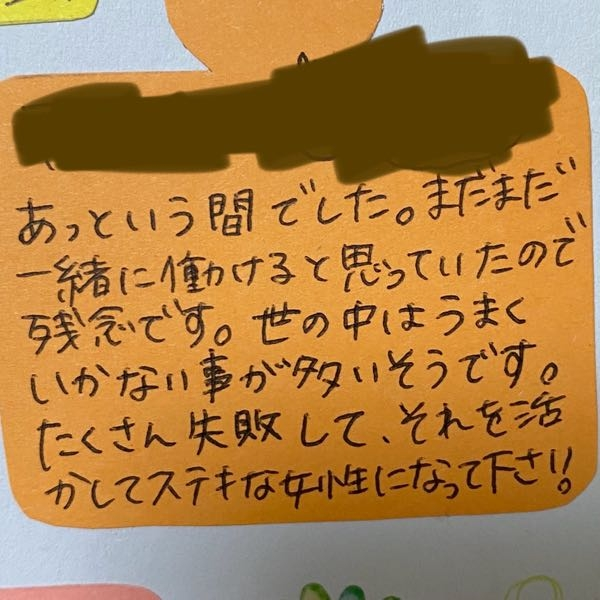 あっという間でした。まだまだ
一緒に働けると思っていたので
残念です。世の中はうまく
いかない事が多いそうです。
たくさん失敗して、それを活
かしてステキな女性になって下さい!